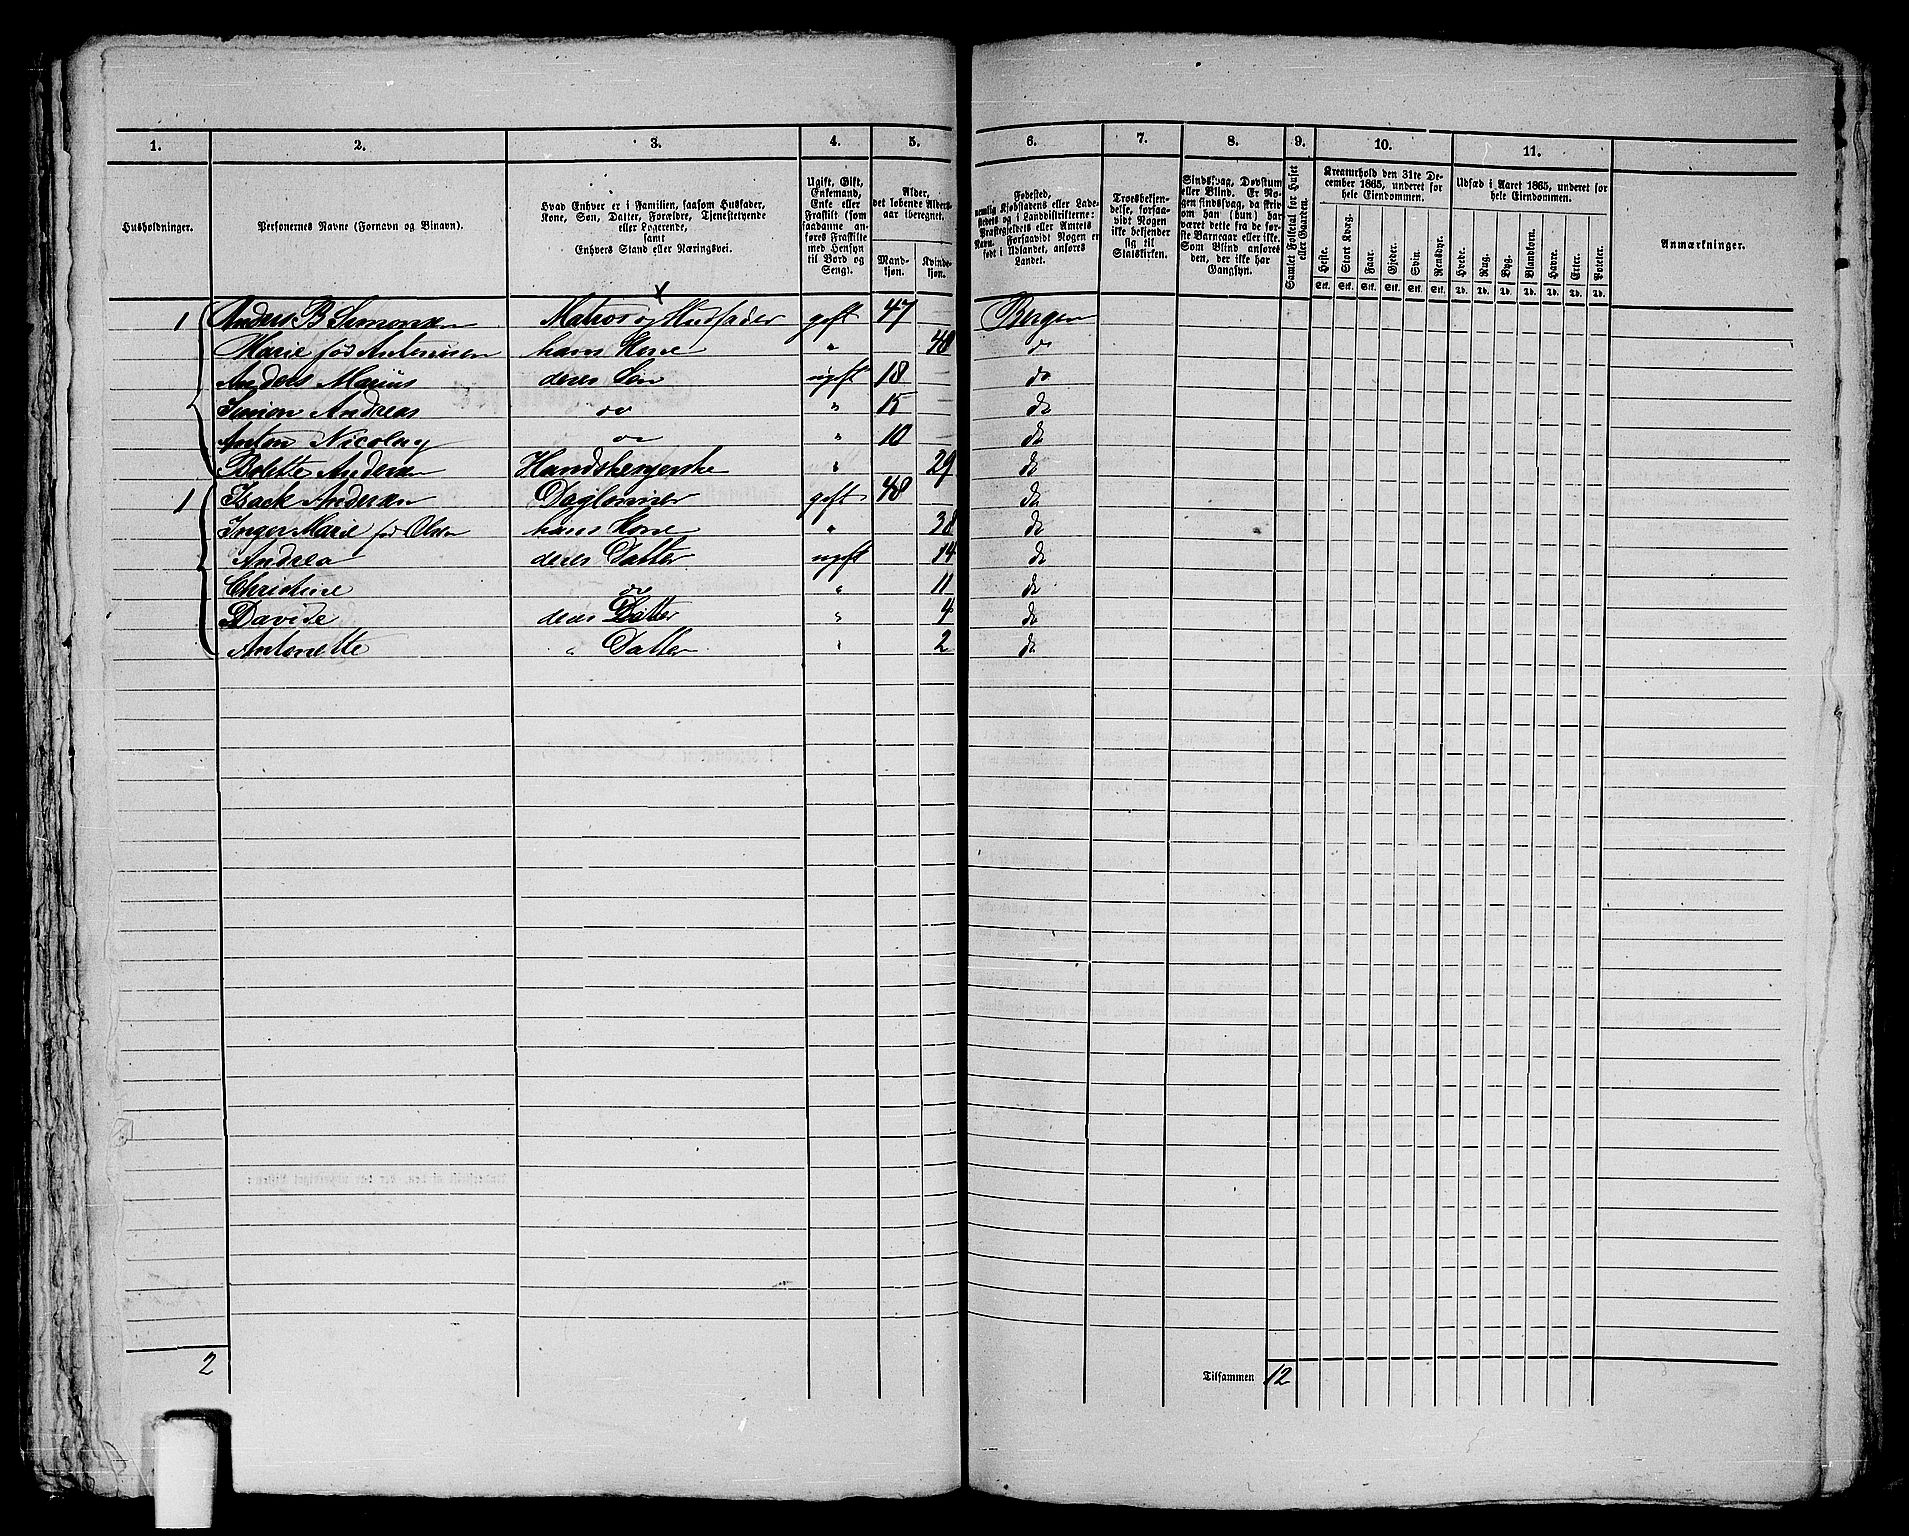 1. 2. 3. 4. 5. 6. 7. 8. 9. 10. 11.
Husholdninger.
Personernes Navne (Fornavn og Binavn).
Hvad Enhver er i Familien, saasom Husfader,
Kone, Søn, Datter, Forældre, Tjenestetyende
eller Logerende,
samt
Enhvers Stand eller Næringsvei.
Ugift, Gift,
Enkemand,
Enke eller
Fraskilt (som
saadanne an-
føres Fraskilte
med Hensyn
til Bord og
Seng).
Alder,
det løbende Alders-
aar iberegnet.
Mand-
kjøn.
Kvinde-
kjøn.
Fødested,
nemlig Kjøbstadens eller Lade-
stedets og i Landdistrikterne:
Præstegjeldets eller Amtets
Navn. Forsaavidt Nogen er
født i Udlandet, anføres
Landet.
Troesbekjen-
delse, forsaa-
vidt Nogen
ikke bekjender
sig til
Statskirken.
Sindssvag, Døvstum
eller Blind. Er No-
gen sindssvag, da skriv
om han (hun) har
været dette fra de før-
ste Barneaar eller ikke.
Som Blind anføres
den, der ikke har
Gangsyn.
Samlet Folketal for Huset
eller Gaarden.
Kreaturhold den 31te De-
cember 1865, underet for
hele Eiendommen.
Heste. Stort Kvæg. Faar. Gjeder. Svin. Rensdyr.
Stk. Stk. Stk. Stk. Stk. Stk.
Udsæd i Aaret 1865, underet for
hele Eiendommen.
Hvede. Rug. Byg. Blandkorn. Havre. Erter. Poteter.
Td. Td. Td. Td. Td. Td. Td.
Anmærkninger.
x
1 Anders B Simonsen Matros og Husfader gift 47 Bergen
Marie fød Antonisen hans Kone " 48 do
Anders Marius deres Søn ugift 18 do
Simon Andreas do " 15 do
Anton Nicolay do " 10 do
Bolette Andersen Handskesyerske " 29 do
1 Isack Andersen Daglønner gift 48 do
Inger Marie fød Olsen hans Kone " 38 do
Andrea deres Datter ugift 14 do
Christine do " 11 do
Davide deres Datter " 4 do
Antonette " Datter " 2 do
2
Tilsammen 12